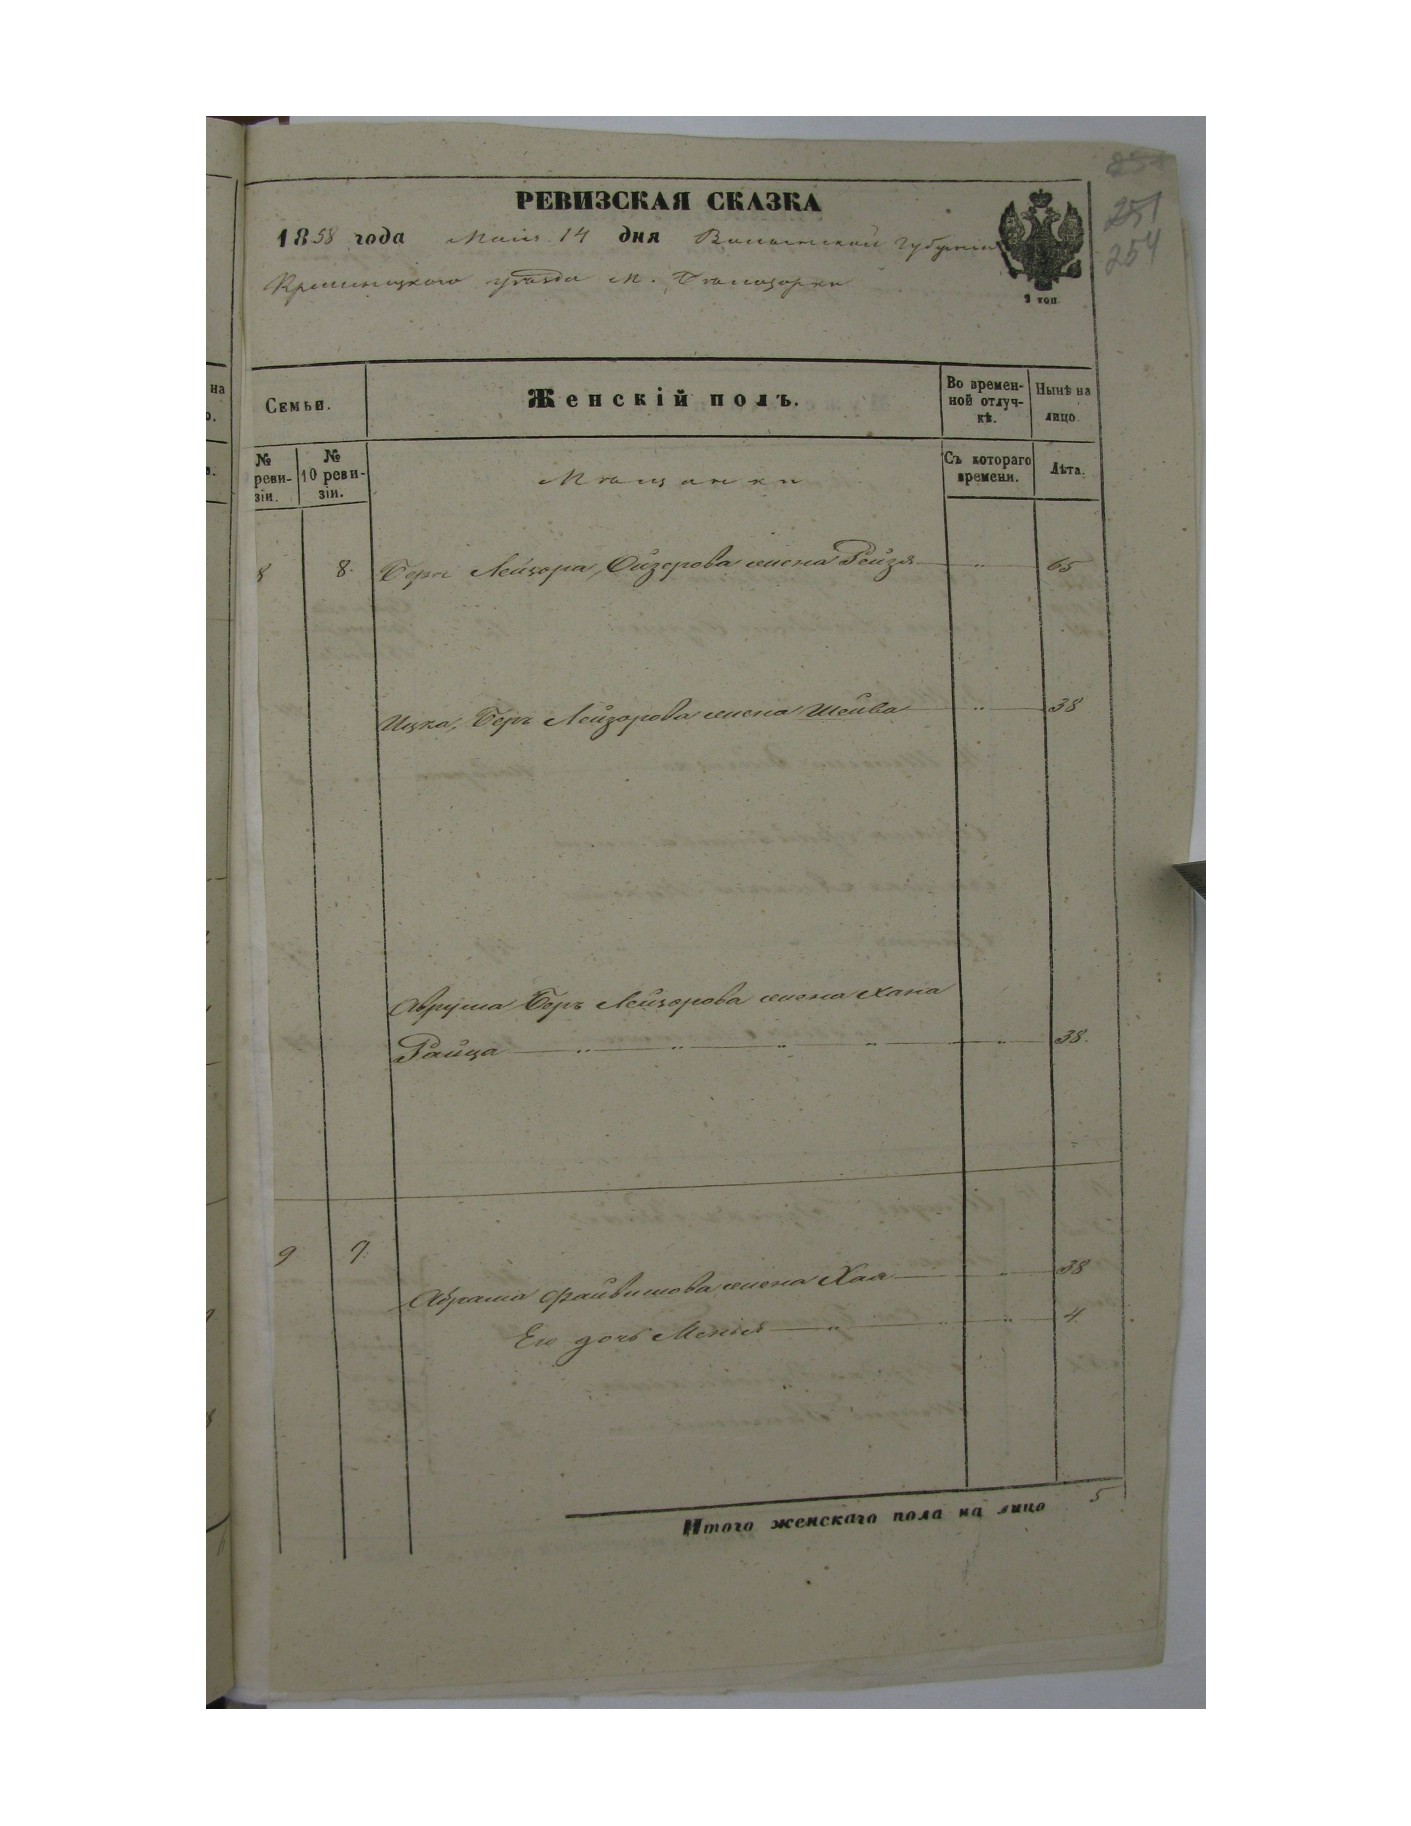 251
254
РЕВИЗСКАЯ СКАЗКА
1858 года Мая 14 дня Волынской Губернии
Кременецкого уезда м. Белозорки
1 коп
Семьи.
Женскій полъ.
Во времен-
ной отлуч-
кѣ.
Нынѣ на
лицо.
№
реви-
зіи.
№
10 реви-
зіи.
Мѣщанки
Съ котораго
времени.
Лѣта.
8 8. Беръ Лейзора, Ойзерова жена Рейзя " 65
Ицка, Беръ Лейзорова жена Шейва " 38
Аврума Беръ Лейзорова жена Хана
Райца " " " " " 38.
9 9. Абрама Файвишова жена Хая " 38
Его дочь Менья " " " 4
Итого женскаго пола на лицо 5